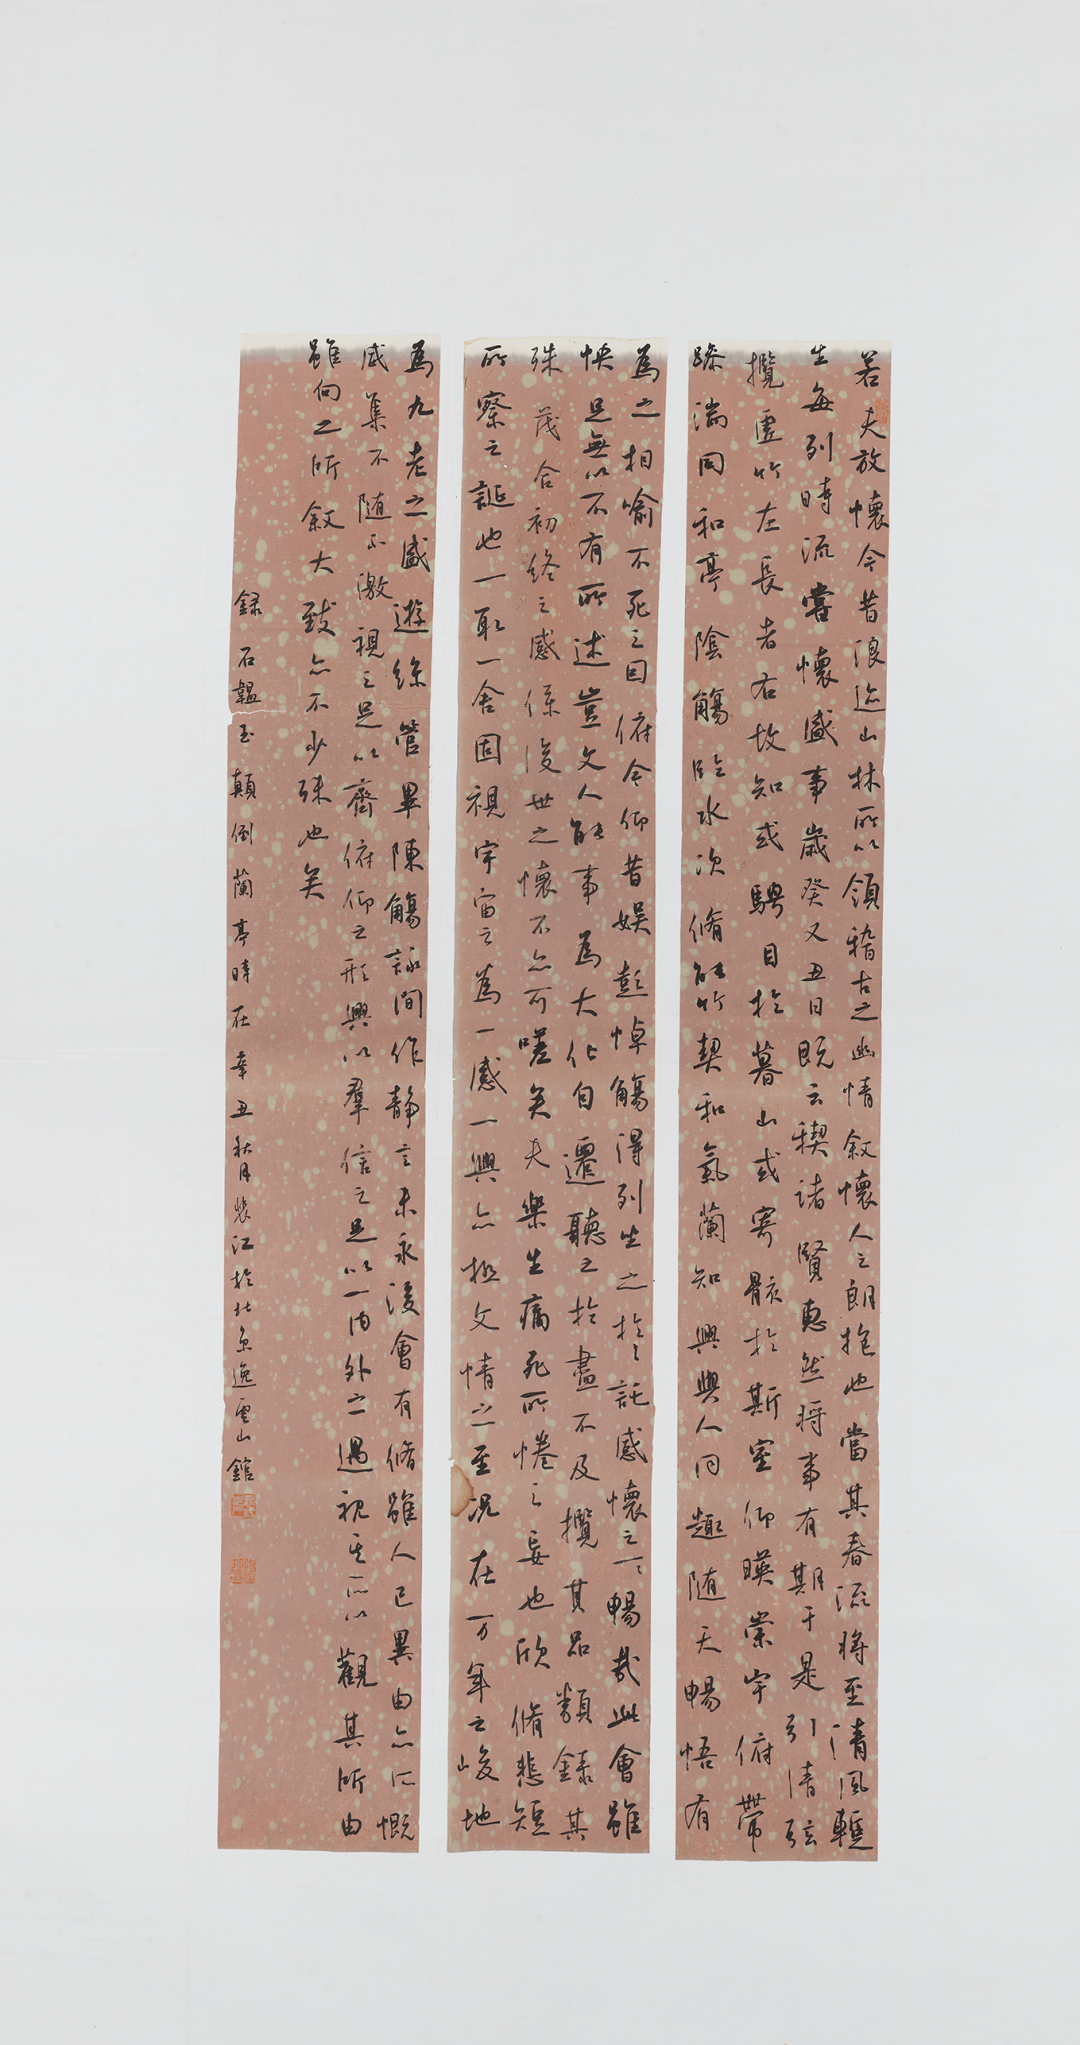 若夫放懷今昔浪迹山林所以領稽古之幽情叙懷人之朗抱也當其春流將至清風輕
生每列時流嘗懷盛事歲癸又丑日既云稧諸賢惠然將事有期于是引清弦
攬虛竹左長者右故知或騁目於暮山或寄骸於斯室仰暎崇宇俯帶
躁湍同和亭陰觴臨水次脩能竹契和氣蘭知興與人同趣随天暢悟有
為之相喻不死之因俯今仰昔娱彭悼觴得列坐之於託感懷之一暢哉此會雖
快足無以不有所述豈文人能事為大化自遷聽之於盡不及攬其品類錄其
殊茂合初終之感係後世之懷不亦可嗟矣夫樂生痛死所惓之妄也欣脩悲短
所察之誕也一取一舍固視宇宙之為一感一興亦極文情之至况在一万年之峻地
為九老之盛遊絲管畢陳觴詠間作静言未永後會有脩雖人已異由亦所慨
咸集不随不激視之足以齊俯仰之形興以羣信之足以一內外之遇視其所以觀其所由
雖向之所叙大致亦不少殊也矣
録石韞玉顛倒蘭亭時在辛丑秋月裴江於北京逸雲山館